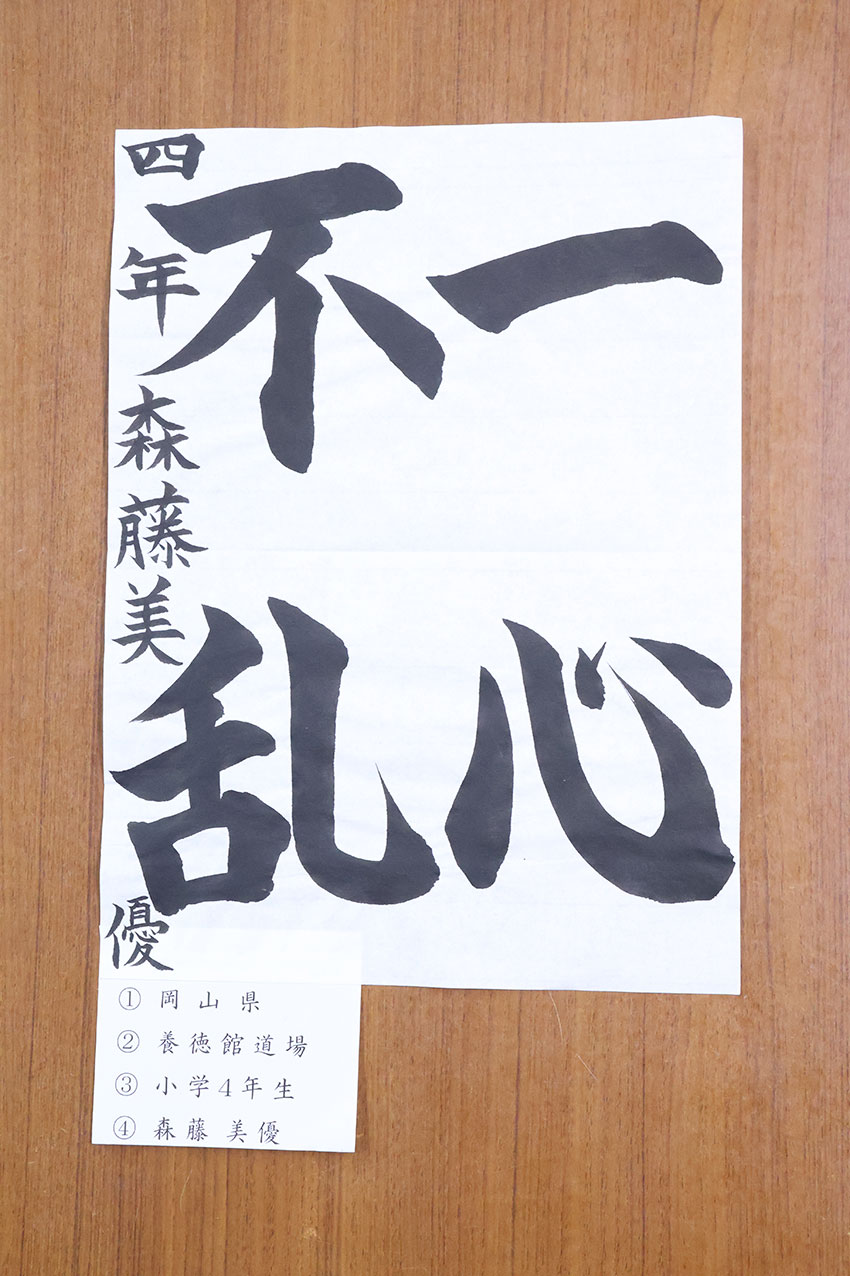 一心
不乱
四年 森藤美優
① 岡山県
② 養徳館道場
③ 小学4年生
④ 森藤 美優